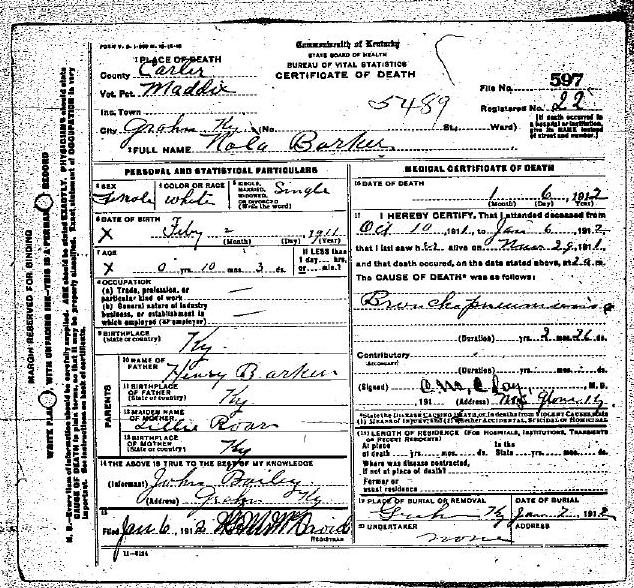 Commonwealth of Kentucky
STATE BOARD OF HEALTH
BUREAU OF VITAL STATISTICS
CERTIFICATE OF DEATH
1 PLACE OF DEATH
County Carter
Vot. Pct. Maddix
Inc. Town
City Grahn Ky (No. St.; Ward)
5489
File No. 597
Registered No. 22
(If death occurred in a hospital or institution, give its NAME instead of street and number.)
2 FULL NAME Nola Barker
PERSONAL AND STATISTICAL PARTICULARS
3 SEX
4 COLOR OR RACE white
5 SINGLE, MARRIED, WIDOWED, OR DIVORCED (Write the word) Single
6 DATE OF BIRTH
X Feby 2 1911
(Month) (Day) (Year)
7 AGE
X 0 yrs. 10 mos. 3 ds.
If LESS than 1 day, hrs. or min.?
8 OCCUPATION
(a) Trade, profession, or particular kind of work —
(b) General nature of industry business, or establishment in which employed (or employer) —
9 BIRTHPLACE
(State or country) Ky.
PARENTS
10 NAME OF FATHER Henry Barker
11 BIRTHPLACE OF FATHER (State or country) Ky
12 MAIDEN NAME OF MOTHER Lillie Roar
13 BIRTHPLACE OF MOTHER (State or country) Ky
14 THE ABOVE IS TRUE TO THE BEST OF MY KNOWLEDGE
(Informant) John Bailey
(Address) Grahn Ky
15
Filed Jan 6, 1912
REGISTRAR
MEDICAL CERTIFICATE OF DEATH
16 DATE OF DEATH
1 6 1912
(Month) (Day) (Year)
17 I HEREBY CERTIFY, That I attended deceased from
Oct 10 1911, to Jan 6, 1912,
that I last saw h alive on 29, 1911,
and that death occurred, on the date stated above, at 2 a.m.
The CAUSE OF DEATH* was as follows:
Broncho pneumonia
(Duration) yrs. 2 mos. 26 ds.
Contributory
(SECONDARY)
(Duration) yrs. mos. ds.
(Signed) M. D.
191 (Address)
*State the DISEASE CAUSING DEATH, or, in deaths from VIOLENT CAUSES, state (1) MEANS OF INJURY; and (2) whether ACCIDENTAL, SUICIDAL or HOMICIDAL.
18 LENGTH OF RESIDENCE (FOR HOSPITALS, INSTITUTIONS, TRANSIENTS OR RECENT RESIDENTS)
At place of death yrs. mos. ds. In the State yrs. mos. ds.
Where was disease contracted, if not at place of death?
Former or usual residence
19 PLACE OF BURIAL OR REMOVAL
Grahn Ky
DATE OF BURIAL
Jan 7, 1912
20 UNDERTAKER
none
ADDRESS
MARGIN RESERVED FOR BINDING
WRITE PLAINLY, WITH UNFADING INK—THIS IS A PERMANENT RECORD
N. B.—Every item of information should be carefully supplied. AGE should be stated EXACTLY. PHYSICIANS should state CAUSE OF DEATH in plain terms, so that it may be properly classified. Exact statement of OCCUPATION is very important. See instructions on back of certificate.